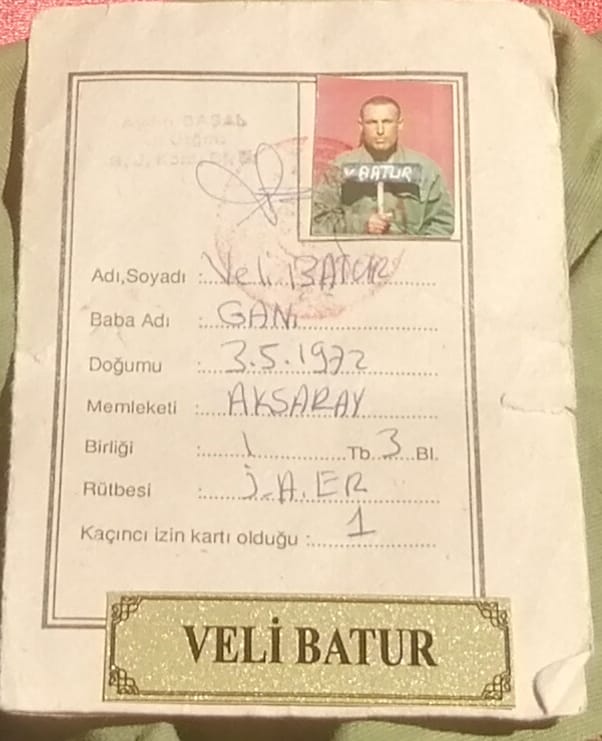 V BATUR
Adı,Soyadı : Veli BATUR
Baba Adı : GANi
Doğumu : 3.5.1972
Memleketi : AKSARAY
Birliği : 1 Tb. 3 Bl.
Rütbesi : J.A.ER
Kaçıncı izin kartı olduğu : 1
VELİ BATUR